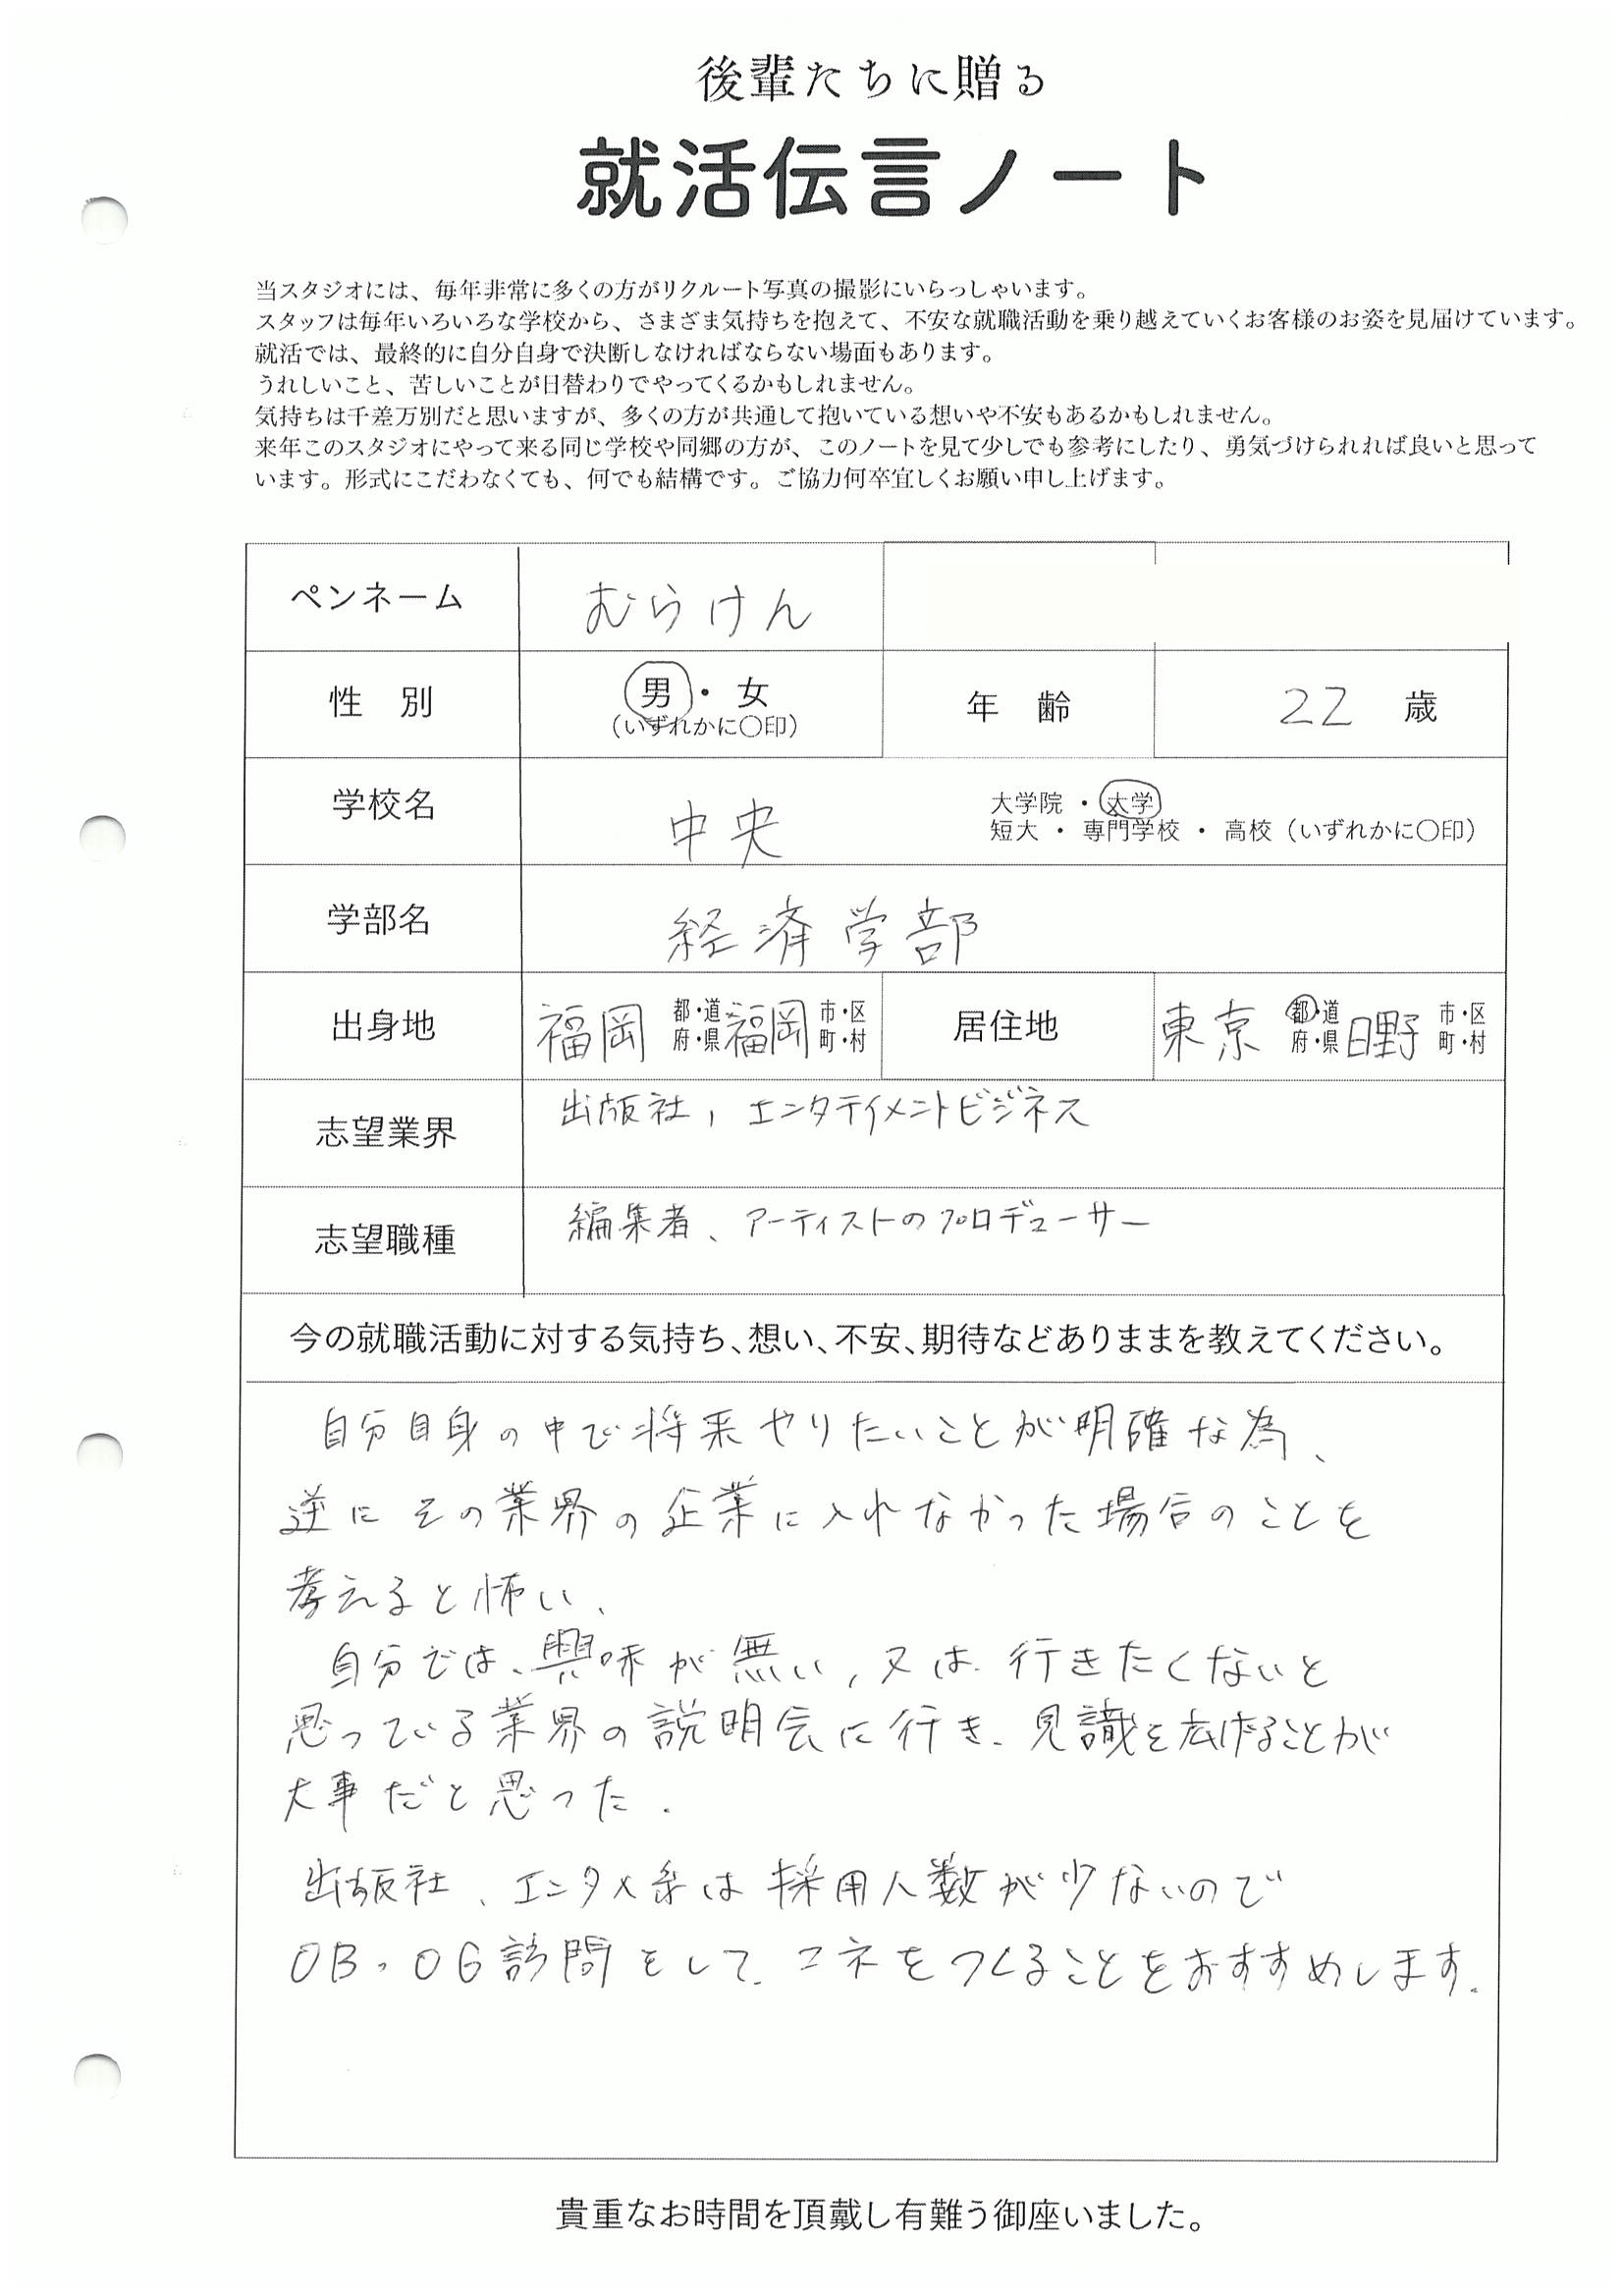 後輩たちに贈る
就活伝言ノート
当スタジオには、毎年非常に多くの方がリクルート写真の撮影にいらっしゃいます。
スタッフは毎年いろいろな学校から、さまざま気持ちを抱えて、不安な就職活動を乗り越えていくお客様のお姿を見届けています。
就活では、最終的に自分自身で決断しなければならない場面もあります。
うれしいこと、苦しいことが日替わりでやってくるかもしれません。
気持ちは千差万別だと思いますが、多くの方が共通して抱いている想いや不安もあるかもしれません。
来年このスタジオにやって来る同じ学校や同郷の方が、このノートを見て少しでも参考にしたり、勇気づけられれば良いと思って
います。形式にこだわなくても、何でも結構です。ご協力何卒宜しくお願い申し上げます。
ペンネーム むらけん
性 別 男・女 年 齢 22 歳
(いずれかに〇印)
学校名 中央 大学院・大学
短大・専門学校・高校(いずれかに〇印)
学部名 経済学部
出身地 福岡 都・道 福岡 市・区 居住地 東京 都・道 日野 市・区
府・県 町・村 府・県 町・村
志望業界 出版社, エンタテイメントビジネス
志望職種 編集者、アーティストのプロデューサー
今の就職活動に対する気持ち、想い、不安、期待などありままを教えてください。
自分自身の中で将来やりたいことが明確な為、
逆にその業界の企業に入れなかった場合のことを
考えると怖い、
自分では、興味が無い, 又は、行きたくないと
思っている業界の説明会に行き、見識を広げることが
大事だと思った.
出版社、エンタメ系は採用人数が少ないので
OB、OG訪問をして、コネをつくることをおすすめします.
貴重なお時間を頂戴し有難う御座いました。